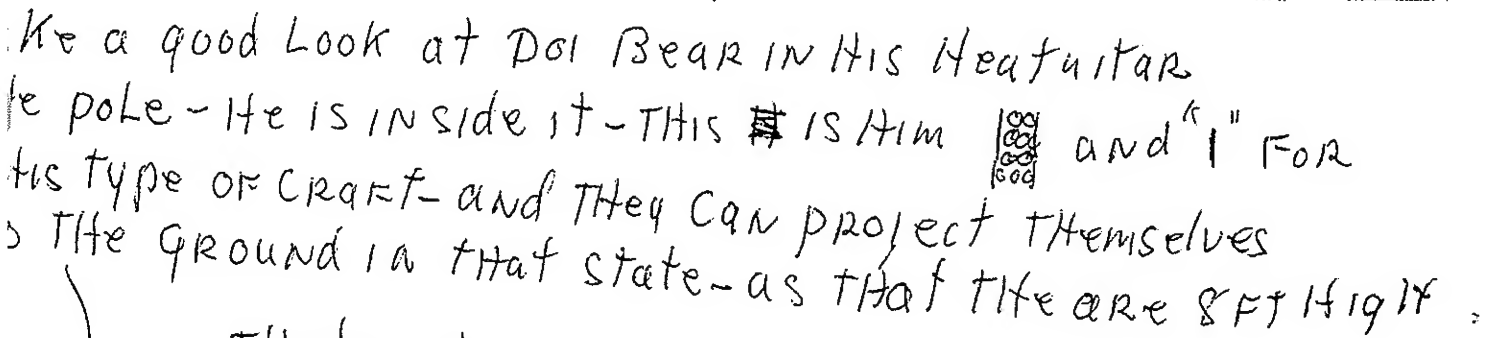 Ke a good Look at DOI BeaR IN HIS HeatuitaR
le pole - He IS INside it - THIS IS HIM and "I" FOR
HIS Type OF CRAFT - and THey CAN project THemselves
THe GROUNd IN tHat State - as tHat tHe aRe 8 FT HigH.